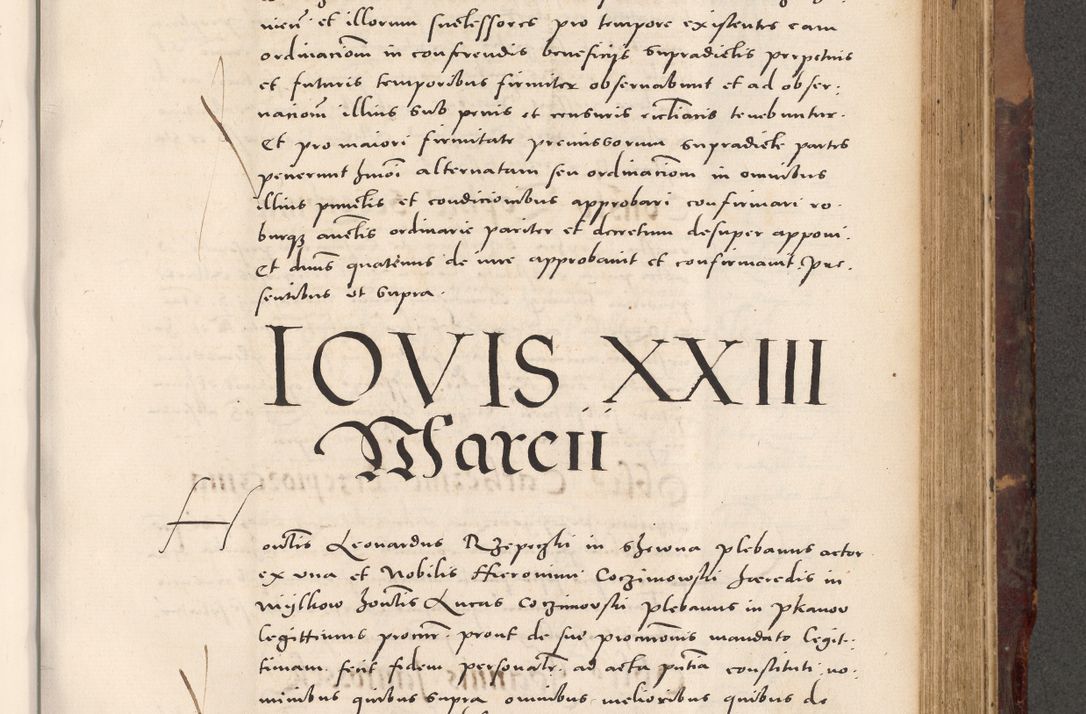 et illorum successores pro tempore existentes eam
ordinaciom in conferendis beneficiis supradictis perpetuis
et futuris temporibus firmiter observabunt et ad obser-
naciom illius sub penis et censuris ecctiacis tenebuntur.
Et pro maiori firmitate premissorum supradicte partes
petierunt hmoi alternatam seu ordinaciom in omnibus
illius punctis et condicionibus approbari confirmari ro-
burque ordinarie pariter et decretum desuper apponi.
Et dnus quatenus de iure approbavit et confirmavit. Pre-
sentibus ut supra.
IOVIS XXIII
Marcii
Honblis Leonardus Rzepeczki in plebanus actor
ex una et Nobilis Hieronimi Coczimowski haeredis in
Wylkow Lucas Coczimovski plebanus in Pkanow
legittimus procur. prout de sue procuronis mandato legit-
timam fecit fidem personatr. ad acta pntia constituti no-
minibus quibus supra omnibus melioribus quibus de